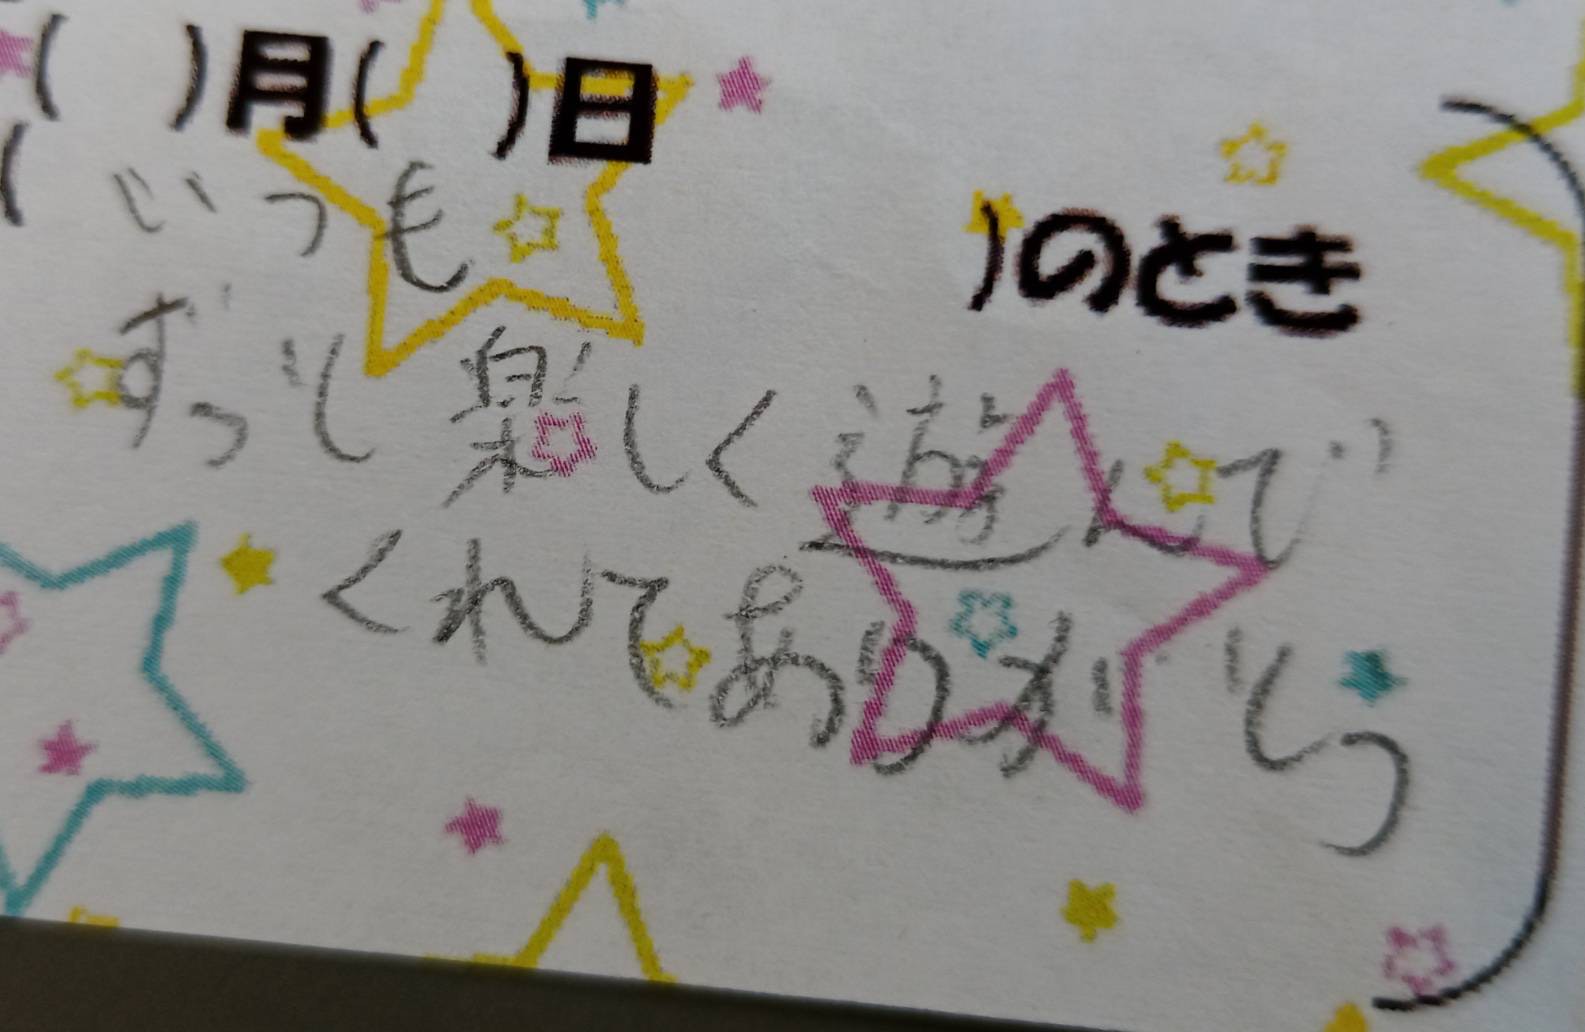 (　)月(　)日
(いつも　)のとき
ずっと楽しく遊んで
くれてありがとう